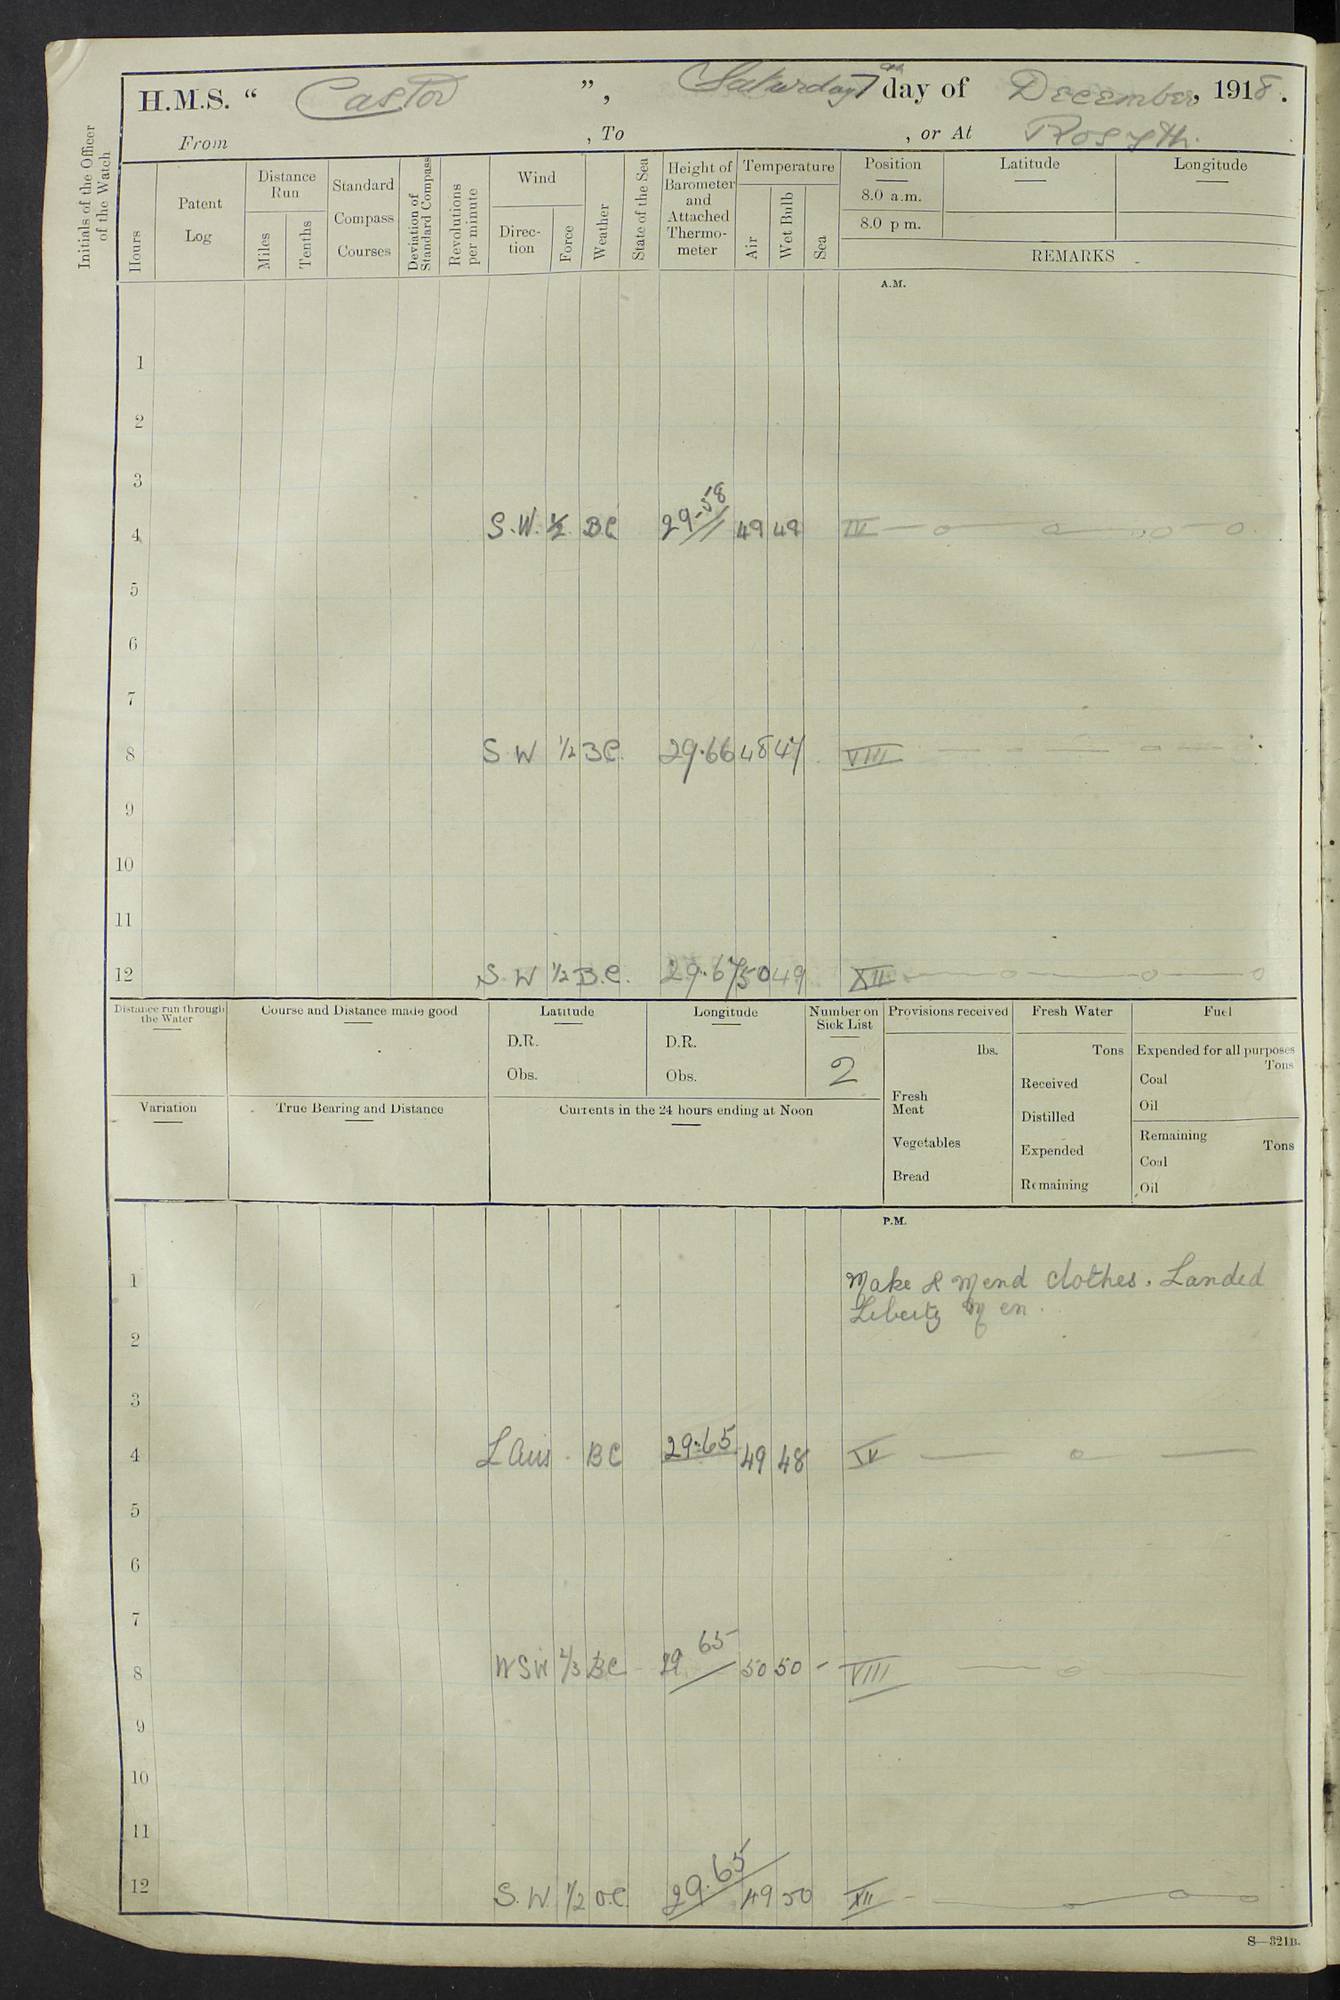 H.M.S. “ Castor ”, Saturday 7th day of December, 1918.
From , To , or At Rosyth.
Initials of the Officer of the Watch
Hours
Patent Log
Distance Run
Miles
Tenths
Standard Compass Courses
Deviation of Standard Compass
Revolutions per minute
Wind
Direction
Force
Weather
State of the Sea
Height of Barometer and Attached Thermometer
Temperature
Air
Wet Bulb
Sea
Position
8.0 a.m.
8.0 p.m.
Latitude
Longitude
REMARKS
A.M.
1
2
3
4 S.W. 1/2 B.C 29.58 49 49 IV
5
6
7
8 S W 1/2 B C. 29.66 48 47 VIII
9
10
11
12 S. W 1/2 B.C. 29.67 50 49 XII
Distance run through the Water
Course and Distance made good
Latitude
D.R.
Obs.
Longitude
D.R.
Obs.
Number on Sick List
2
Provisions received
lbs.
Fresh Meat
Vegetables
Bread
Fresh Water
Tons
Received
Distilled
Expended
Remaining
Fuel
Expended for all purposes
Tons
Coal
Oil
Remaining
Tons
Coal
Oil
Variation
True Bearing and Distance
Currents in the 24 hours ending at Noon
P.M.
1 Make & Mend Clothes. Landed
Liberty Men.
2
3
4 L Airs B C 29.65 49 48 IV
5
6
7
8 W S W 2/3 B C 29 65 50 50 VIII
9
10
11
12 S. W. 1/2 O.C. 29.65 49 50 XII
S—321B.